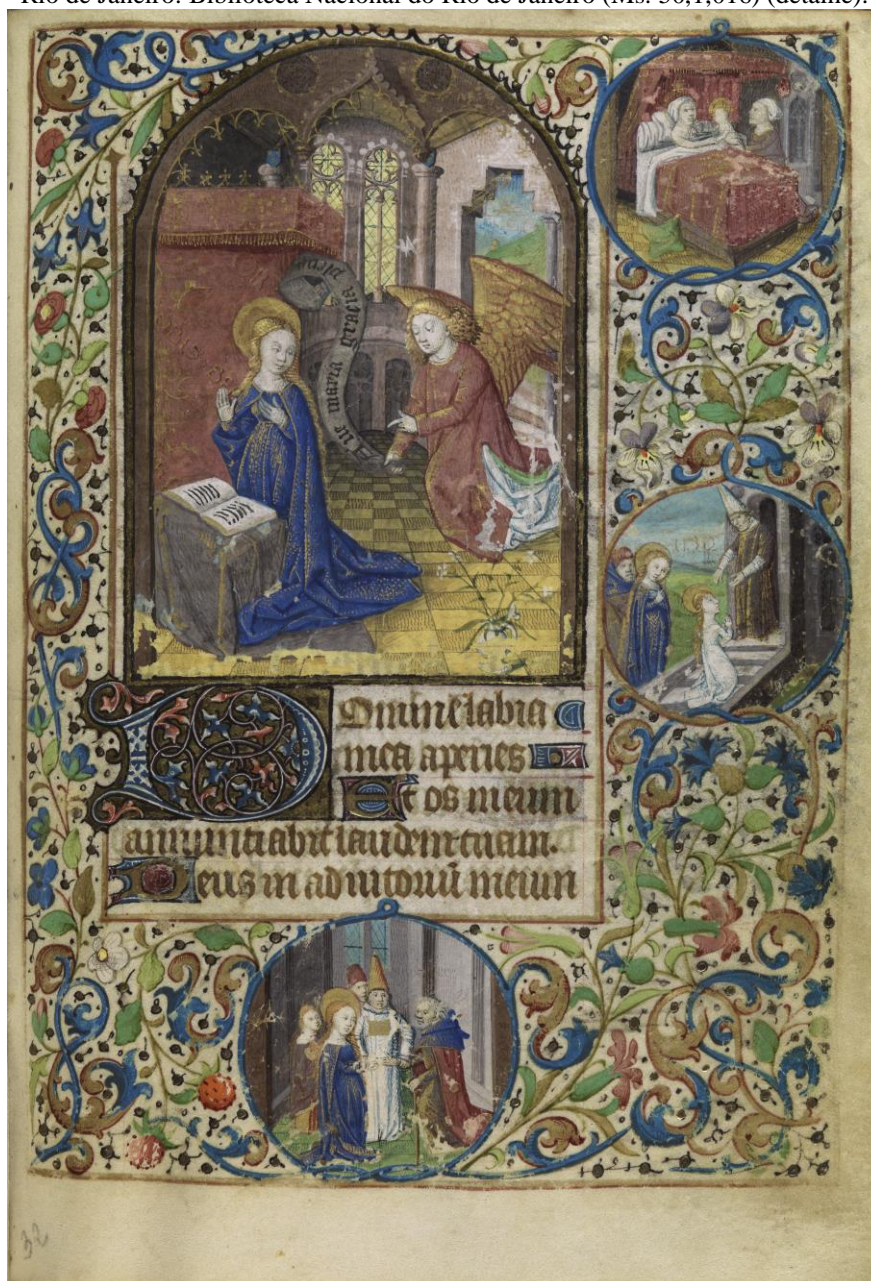 Rio de Janeiro: Biblioteca Nacional do Rio de Janeiro (Ms. 50,1,016) (detalhe).
Aue maria gracia plena
Domine labia
mea aperies
Et os meum
annuntiabit laudem tuam.
Deus in adiutoriū meum
32